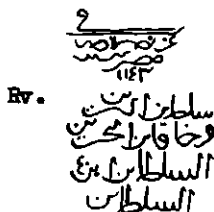 فى
عز نصره ضرب
مصر سنة
١١٤٣
Rv.
سلطان البرين
وخاقان البحرين
السلطان بن
السلطان